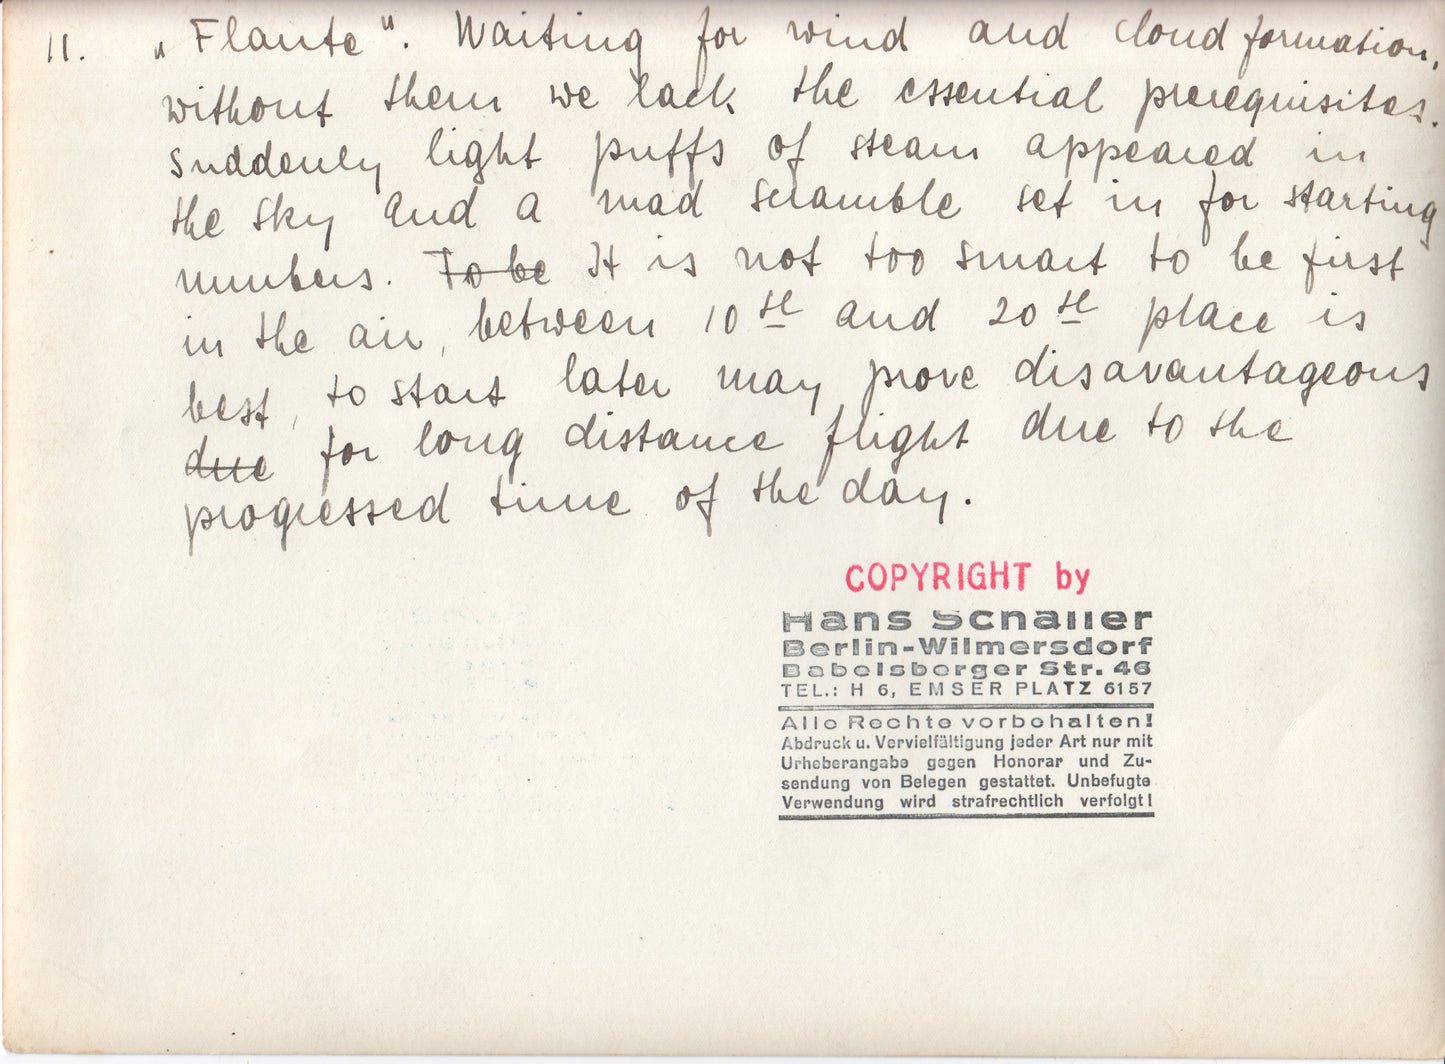 11. „Flaute". Waiting for wind and cloud formation,
without them we lack the essential prerequisites.
Suddenly light puffs of steam appeared in
the sky and a mad scramble set in for starting
numbers. To be It is not too smart to be first
in the air, between 10th and 20th place is
best, to start later may prove disavantageous
due for long distance flight due to the
progressed time of the day.
COPYRIGHT by
Hans Schaller
Berlin-Wilmersdorf
Babelsberger Str. 46
TEL.: H 6, EMSER PLATZ 6157
Alle Rechte vorbehalten!
Abdruck u. Vervielfältigung jeder Art nur mit
Urheberangabe gegen Honorar und Zu-
sendung von Belegen gestattet. Unbefugte
Verwendung wird strafrechtlich verfolgt!